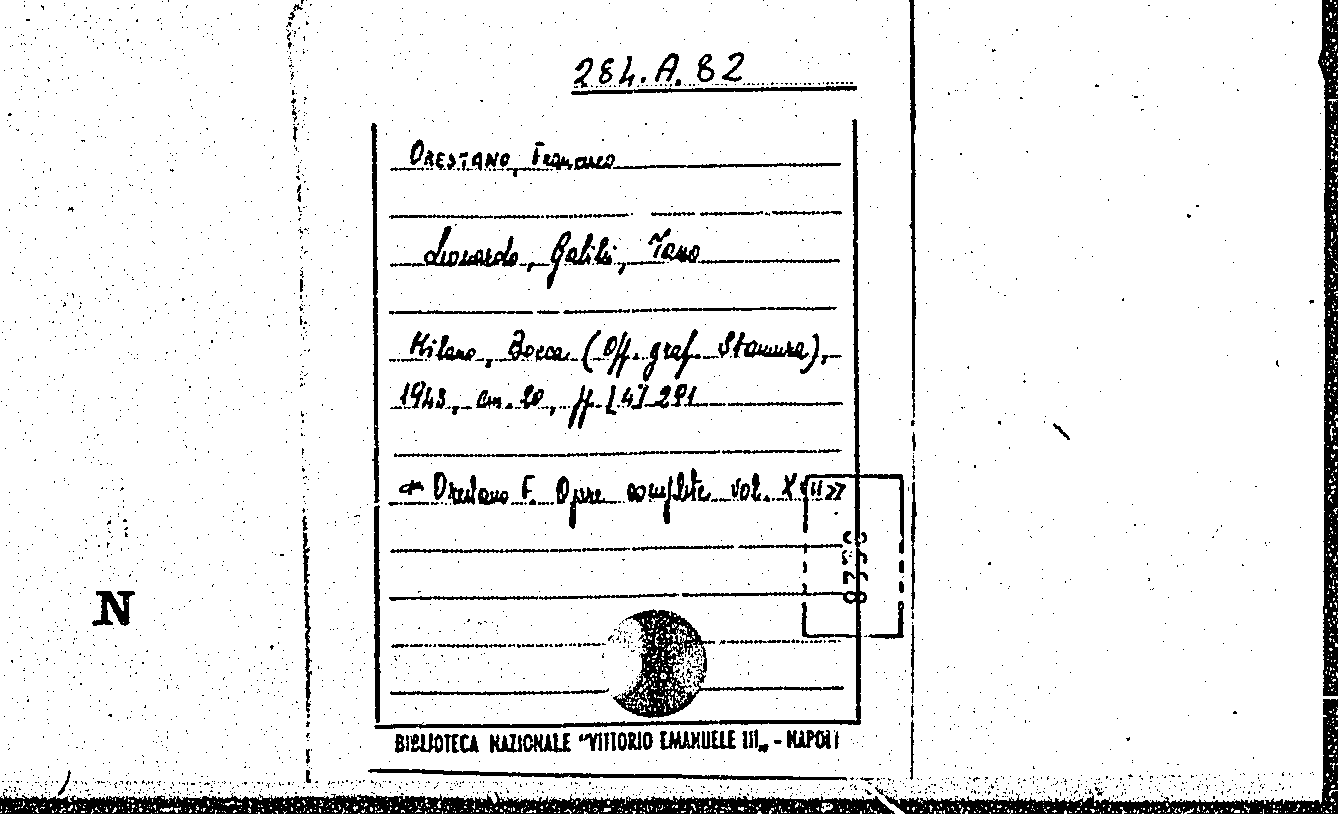 284.A.82
ORESTANO, Francesco
Leonardo, Galilei, Tasso
Milano, Bocca (Off. graf. Stamura),
1943, cm. 20, pp. [4] 291
Orestano F. Opere complete vol.
8330
N
BIBLIOTECA NAZIONALE "VITTORIO EMANUELE III„ - NAPOLI